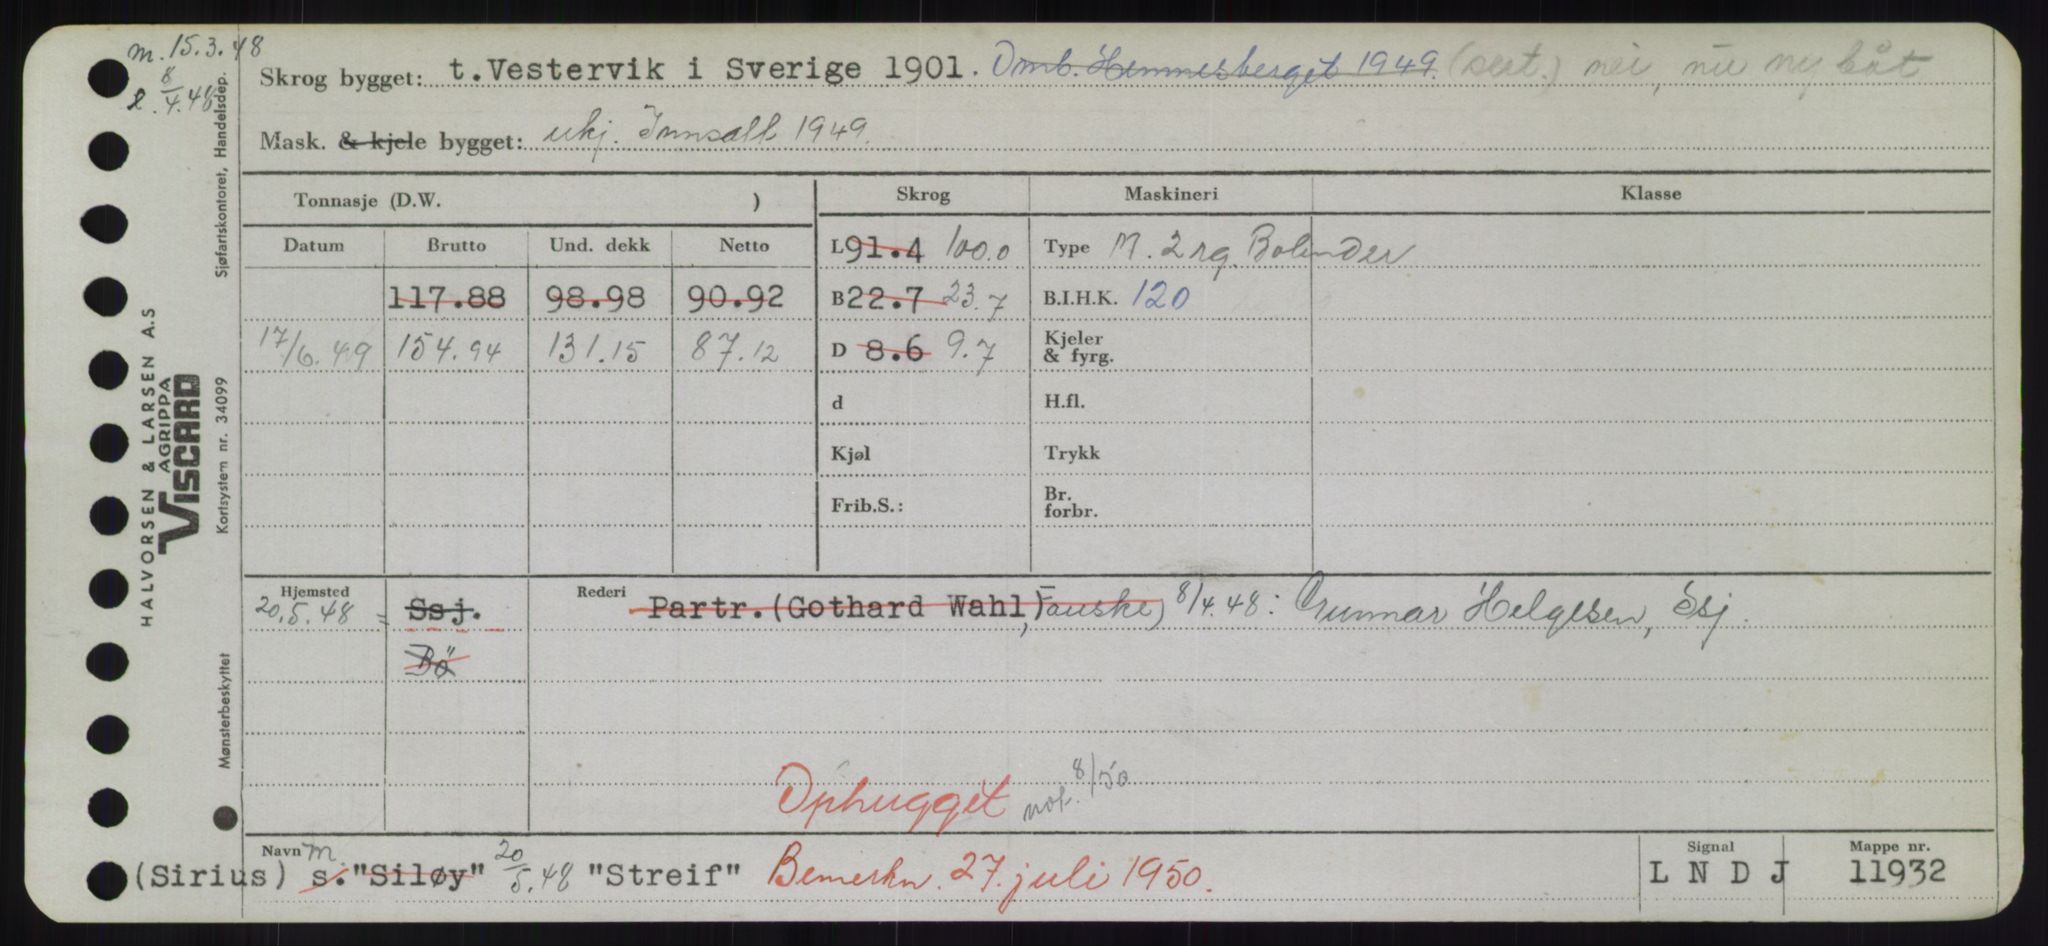 m. 15.3.48
8/4.48
Skrog bygget: t.Vestervik i Sverige 1901. Omb. Hemnesberget 1949. (sert.) nei, nu ny båt
Mask. & kjele bygget: ukj. Innsatt 1949.
Tonnasje (D.W. )
Skrog Maskineri Klasse
Datum Brutto Und. dekk Netto
L 91.4 100.0 Type M. 2 sg. Bolinder
117.88 98.98 90.92 B 22.7 23.7 B.I.H.K. 120
17/6.49 154.94 131.15 87.12 D 8.6 9.7 Kjeler & fyrg.
d H.fl.
Kjøl Trykk
Frib.S.: Br. forbr.
Hjemsted Rederi
20.5.48 = Ssj. Partr.(Gothard Wahl, Fauske) 8/4.48: Gunnar Helgesen, Ssj.
Bö
Ophugget not. 8/50
Navn m Signal Mappe nr.
(Sirius) s. "Siløy" 20/5.48 "Streif" Bemerkn. 27. juli 1950. L N D J 11932
HALVORSEN & LARSEN A.S
AGRIPPA
VISCARD
Mønsterbeskyttet Kortsystem nr. 34099 Sjøfartskontoret, Handelsdep.